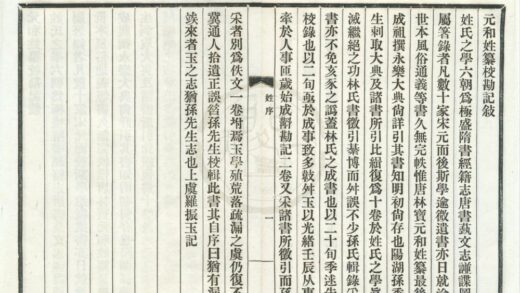 元和姓纂校勘記敍
姓氏之學六朝爲極盛隋書經籍志唐書蓺文志譜諜
屬箸錄者凡數十家宋元而後斯學逾微遺書亦日就
世本風俗通義等書久無完帙惟唐林寶元和姓纂最後
成祖撰永樂大典尙詳引其書知明初尙存也陽湖孫
生刺取大典及諸書所引比緝復爲十卷於姓氏之學
滅繼絕之功林氏書徵引綦博而舛誤不少孫氏輯錄
書亦不免亥豕之譌蓋林氏之成書也以二十旬季逑
校錄也以二旬亟於成事致多戟舛玉以光緒壬辰从事
牽於人事匝歲始成斠勘記二卷又采諸書所徵引而
姓序
一
采者別爲佚文一卷坿焉玉學殖荒落疏漏之虞仍復不
冀通人拾遺正誤昔孫先生校輯此書其自序曰猶有漏
竢來者玉之志猶孫先生志也上虞羅振玉記